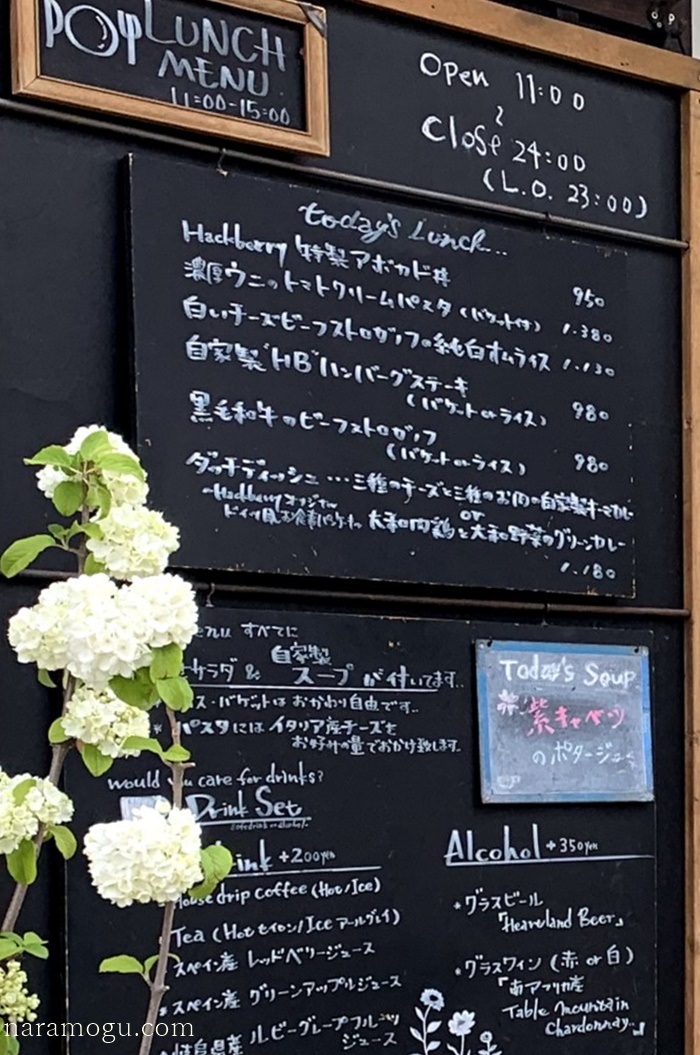 LUNCH
MENU
11:00-15:00
Open 11:00
〜
Close 24:00
(L.O. 23:00)
today's Lunch...
Hackberry 特製アボカド丼 950
濃厚ウニのトマトクリームパスタ (バケット付) 1.380
白いチーズビーフストロガノフの純白オムライス 1.130
自家製"HB"ハンバーグステーキ
(バケット or ライス) 980
黒毛和牛のビーフストロガノフ
(バケット or ライス) 980
ダッチディッシュ…三種のチーズと三種のお肉の自家製キーマカレー
Hackberry オリジナル or
ドイツ風お食事パンケーキ 大和肉鶏と大和野菜のグリーンカレー
1.180
menu すべてに
サラダ & 自家製スープ が付いてます..
ス・バケットはおかわり自由です..
* パスタにはイタリア産チーズを
お好みの量でおかけ致します.
Today's Soup
紫キャベツ
のポタージュ
would you care for drinks?
Drink Set
+200yen
House drip coffee (Hot/Ice)
Tea (Hot セイロン/Ice アールグレイ)
スペイン産 レッドベリージュース
* スペイン産 グリーンアップルジュース
ルビーグレープフルーツ
ジュース
Alcohol +350yen
* グラスビール
「Heartland Beer」
* グラスワイン (赤 or 白)
「南アフリカ産
Table Mountain
Chardonnay..」
naramogu.com